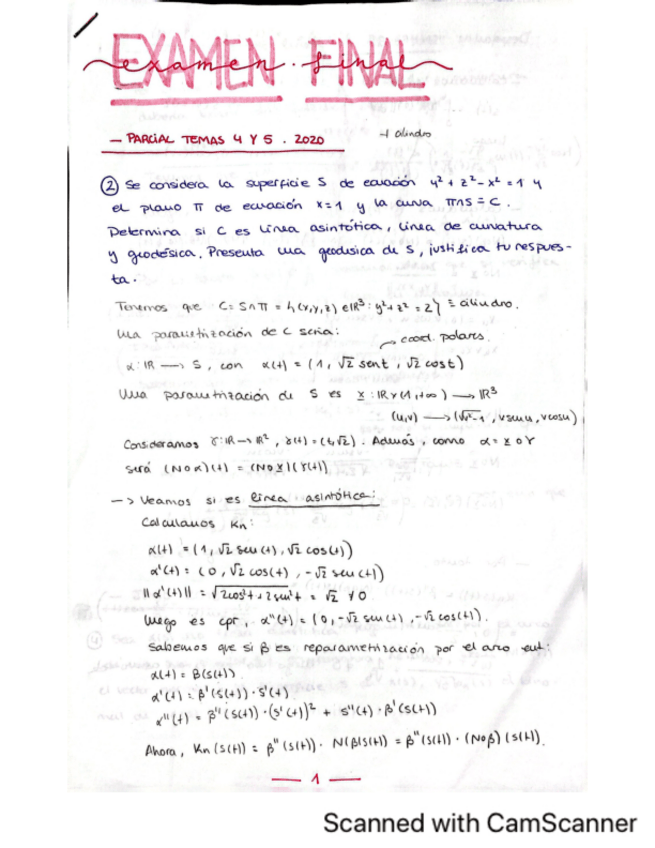 EXAMEN FINAL
examen.final
- PARCIAL TEMAS 4 Y 5. 2020
cilindro
② Se considera la superficie S de ecuación y² + z² - x² = 1 y
el plano π de ecuación x=1 y la curva π∩S = C.
Determina si C es línea asintótica, línea de curvatura
y geodésica. Presenta una geodésica de S, justifica tu respues-
ta.
Tenemos que C = S∩π = {(x,y,z) ∈ ℝ³ : y² + z² = 2} ≡ cilindro.
Una parametrización de C sería:
coord. polares.
α: ℝ → S, con α(t) = (1, √2 sent, √2 cost)
Una parametrización de S es x: ℝ×(1,+∞) → ℝ³
(u,v) → (√v²-1, v senu, v cosu)
Consideramos γ: ℝ → ℝ², γ(t) = (t,√2). Además, como α = x∘γ
será (N∘α)(t) = (N∘x)(γ(t))
-> Veamos si es línea asintótica:
Calculamos Kn:
α(t) = (1, √2 sen(t), √2 cos(t))
α'(t) = (0, √2 cos(t), -√2 sen(t))
||α'(t)|| = √2cos²t + 2sen²t = √2 ≠ 0
luego es cpr, α''(t) = (0, -√2 sen(t), -√2 cos(t)).
Sabemos que si β es reparametrización por el arco ent:
α(t) = β(s(t))
α'(t) = β'(s(t)) · s'(t)
α''(t) = β''(s(t)) · (s'(t))² + s''(t) · β'(s(t))
Ahora, Kn(s(t)) = β''(s(t)) · N(β(s(t)) = β''(s(t)) · (N∘β)(s(t)).
— 1 —
Scanned with CamScanner